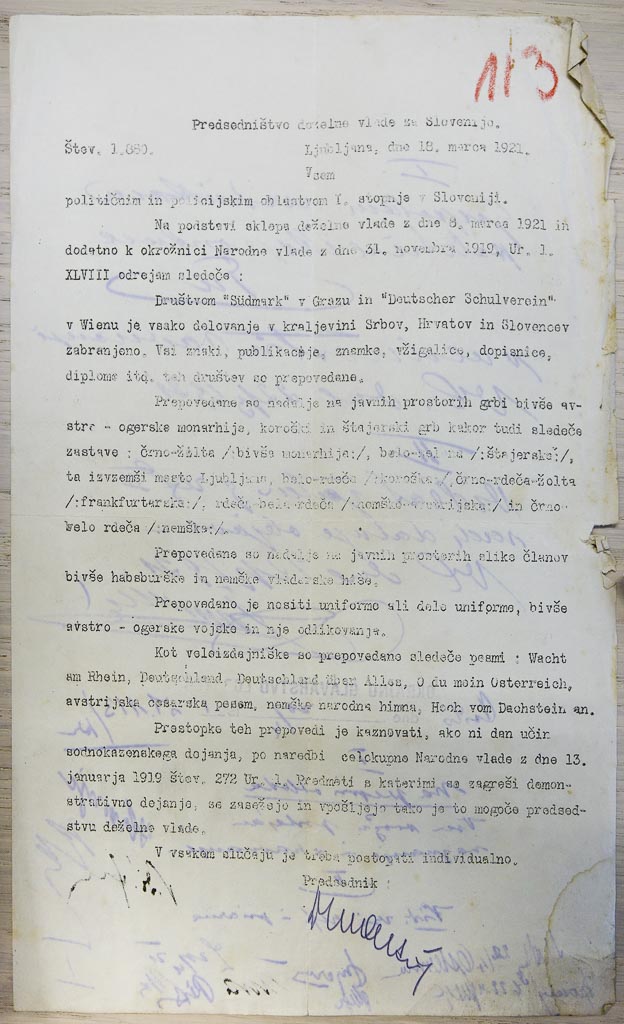 113
Predsedništvo deželne vlade za Slovenijo.
Štev. 1.880. Ljubljana, dne 18. marca 1921.
Vsem
političnim in policijskim oblastvom I. stopnje v Sloveniji.
Na podstavi sklepa deželne vlade z dne 8. marca 1921 in
dodatno k okrožnici Narodne vlade z dne 31. novembra 1919, Ur. l.
XLVIII odrejam sledeče :
Društvom "Südmark" v Grazu in "Deutscher Schulverein"
v Wienu je vsako delovanje v kraljevini Srbov, Hrvatov in Slovencev
zabranjeno. Vsi znaki, publikacije, znamke, vžigalice, dopisnice,
diplome itd. teh društev so prepovedane.
Prepovedane so nadalje na javnih prostorih grbi bivše av-
stro - ogerske monarhije, koroški in štajerski grb kakor tudi sledeče
zastave : črno-žilta /:bivše monarhije:/, belo- /:štajerske:/,
ta izvzemši mesto Ljubljana, belo-rdeča /:koroška:/, črno-rdeča-žolta
/:frankfurtarska:/, rdeče-bela-rdeča /:nemško-avstrijska:/ in črno-
belo rdeča /:nemška:/.
Prepovedane so nadalje na javnih prostorih slike članov
bivše habsburške in nemške vladarske hiše.
Prepovedano je nositi uniformo ali dele uniforme, bivše
avstro - ogerske vojske in nje odlikovanja.
Kot veleizdajniške so prepovedane sledeče pesmi : Wacht
am Rhein, Deutschland, Deutschland über Alles, O du mein Österreich,
avstrijska cesarska pesem, nemške narodna himna, Hoch vom Dachstein an.
Prestopke teh prepovedi je kaznovati, ako ni dan učin
sodnokazenskega dejanja, po naredbi celokupne Narodne vlade z dne 13.
januarja 1919 štev. 272 Ur. l. Predmeti s katerimi se zagreši demon-
strativno dejanje, se zasežejo in vpošljejo tako je to mogoče predsed-
stvu deželne vlade.
V vsakem slučaju je treba postopati individualno.
Predsednik :